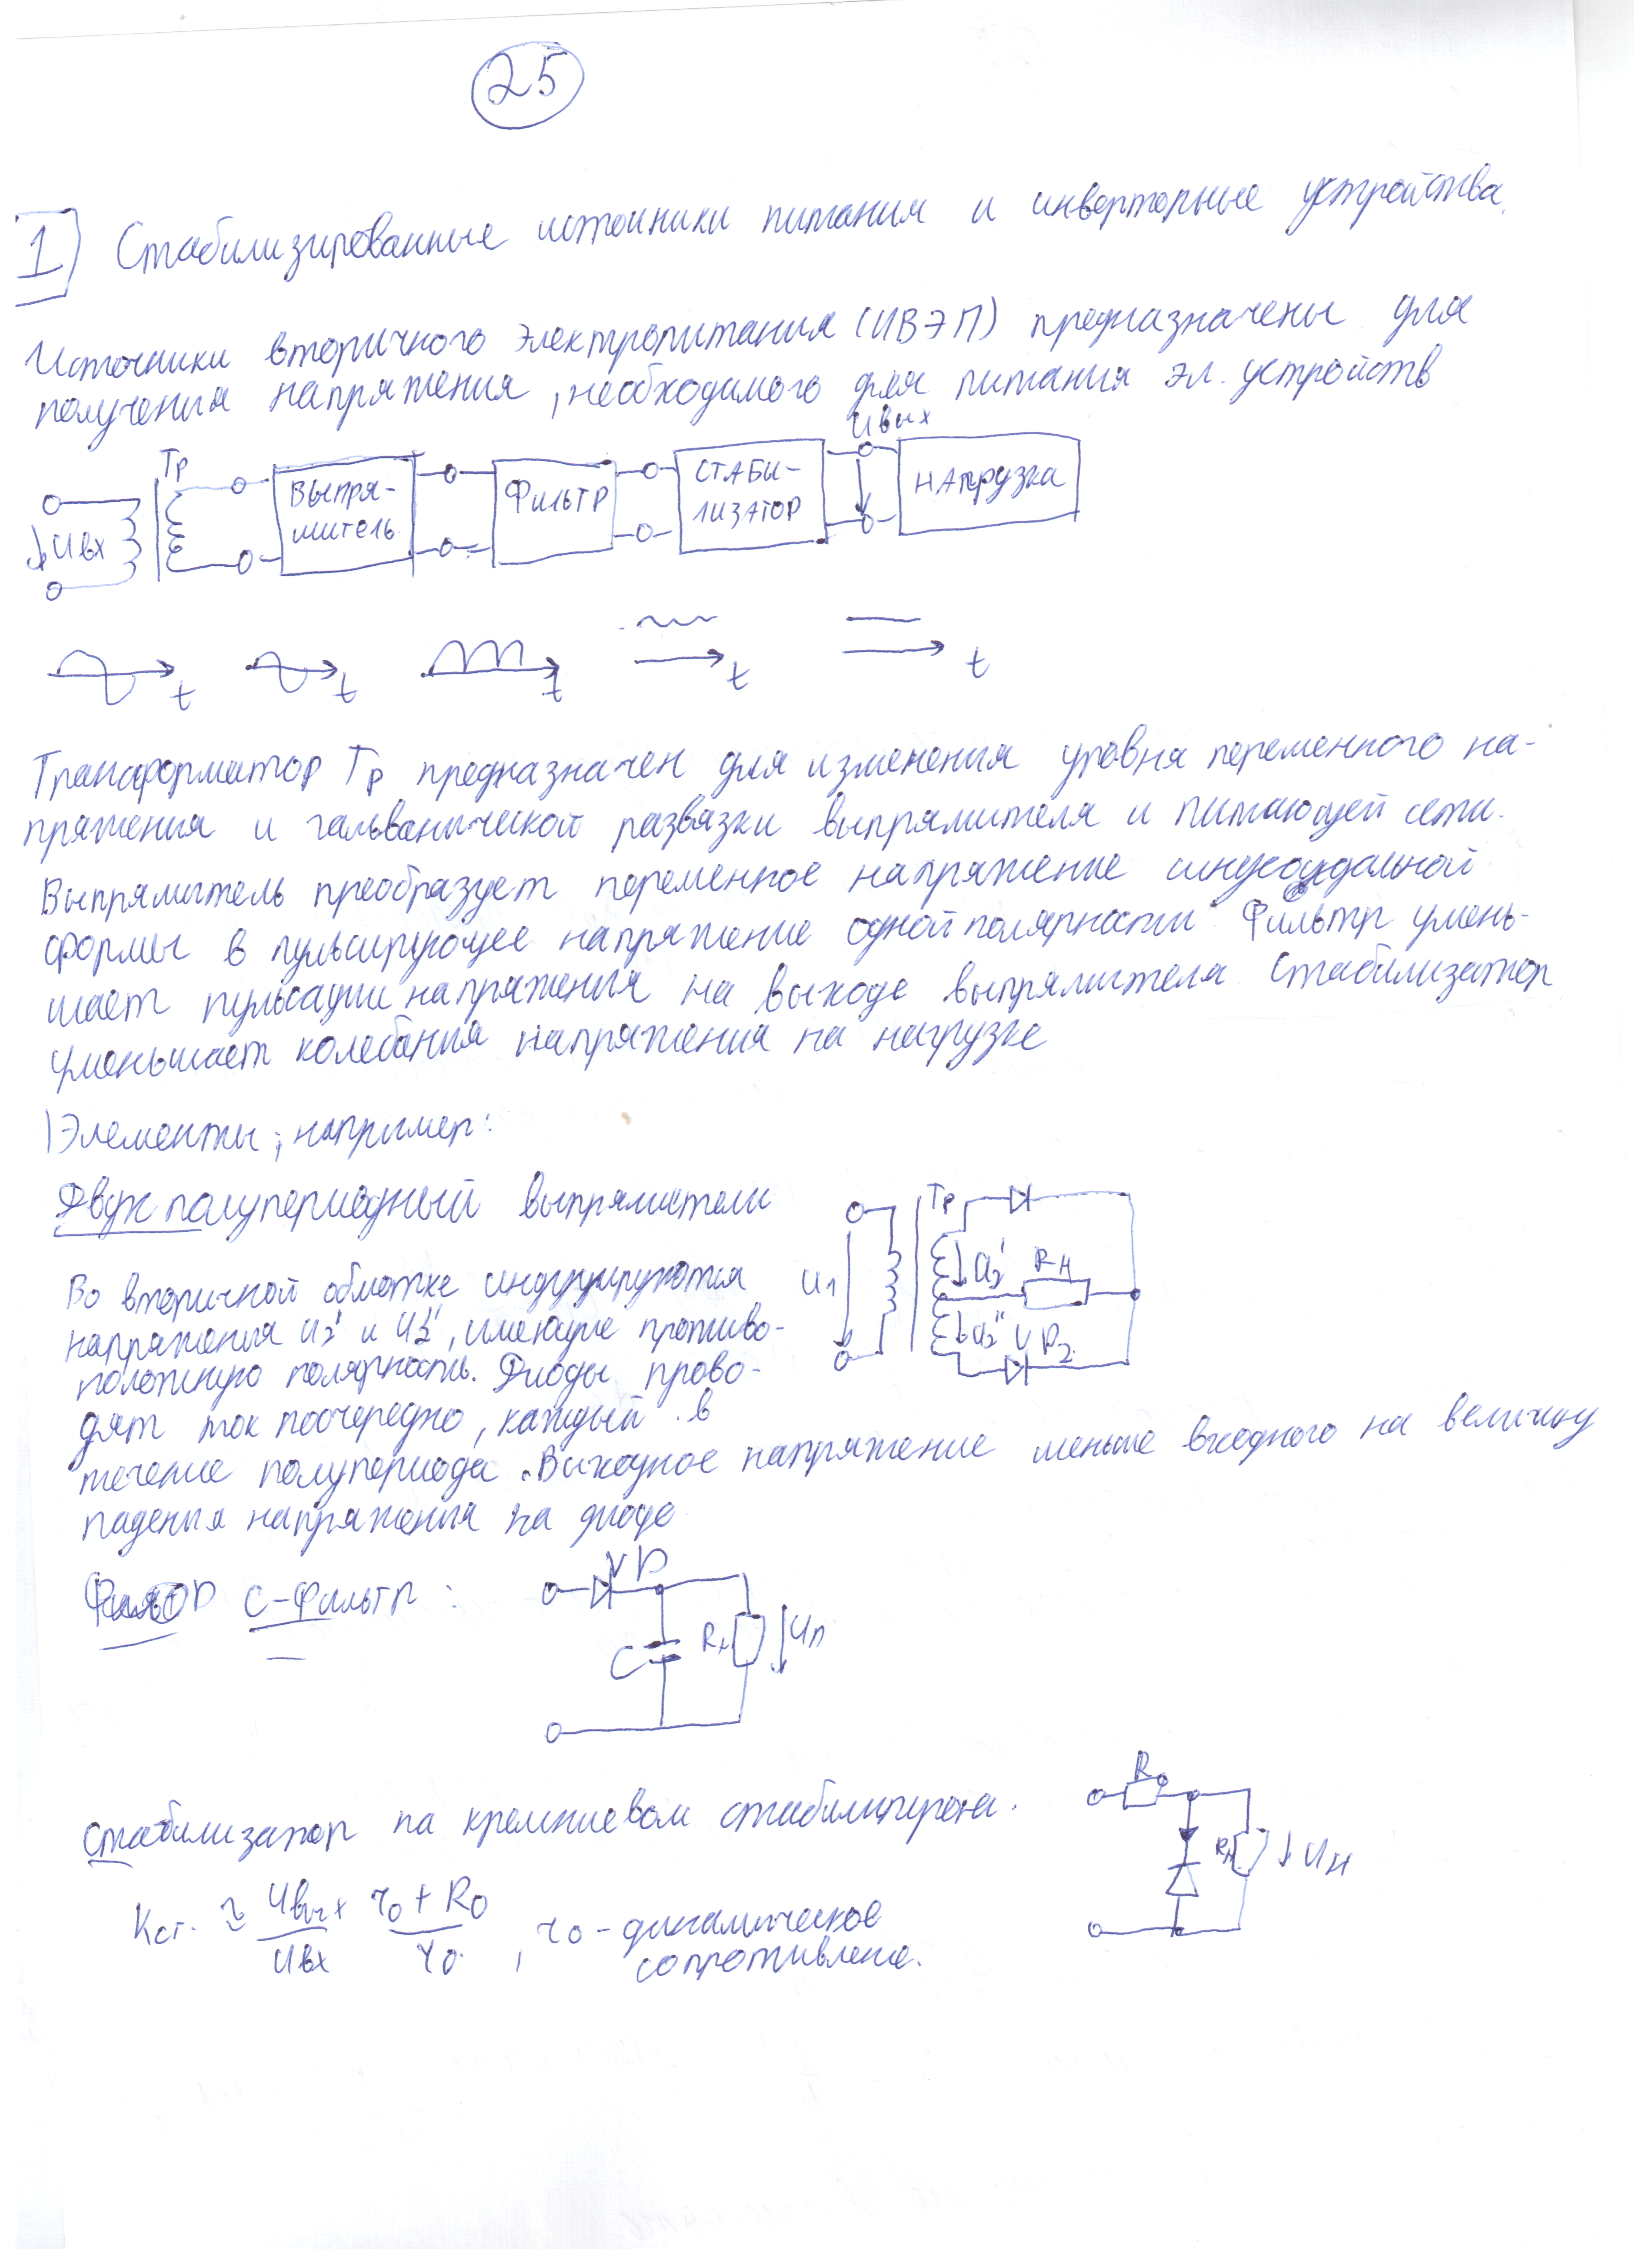 25
1) Стабилизированные источники питания и инверторные устройства.
Источники вторичного электропитания (ИВЭП) предназначены для
получения напряжения, необходимого для питания эл. устройств
Uвх
Тр
ВЫПРЯ-
МИТЕЛЬ
ФИЛЬТР
СТАБИ-
ЛИЗАТОР
Uвых
НАГРУЗКА
t t t t t
Трансформатор Тр предназначен для изменения уровня переменного на-
пряжения и гальванической развязки выпрямителя и питающей сети.
Выпрямитель преобразует переменное напряжение синусоидальной
формы в пульсирующее напряжение одной полярности Фильтр умень-
шает пульсации напряжения на выходе выпрямителя Стабилизатор
уменьшает колебания напряжения на нагрузке
Элементы, например:
Двухполупериодный выпрямители
U1 Тр U2' RH U2'' VD2
Во вторичной обмотке индуцируются
напряжения U2' и U2'', имеющие противо-
положную полярность. Диоды прово-
дят ток поочередно, каждый в
течение полупериода. Выходное напряжение меньше входного на величину
падения напряжения на диоде
С-Фильтр:
VD
C
RH
Uп
Стабилизатор на кремниевом стабилитроне.
R0
RH
UH
Kст. ≈ Uвых/Uвх (r0 + R0)/r0, r0 - динамическое
сопротивление.